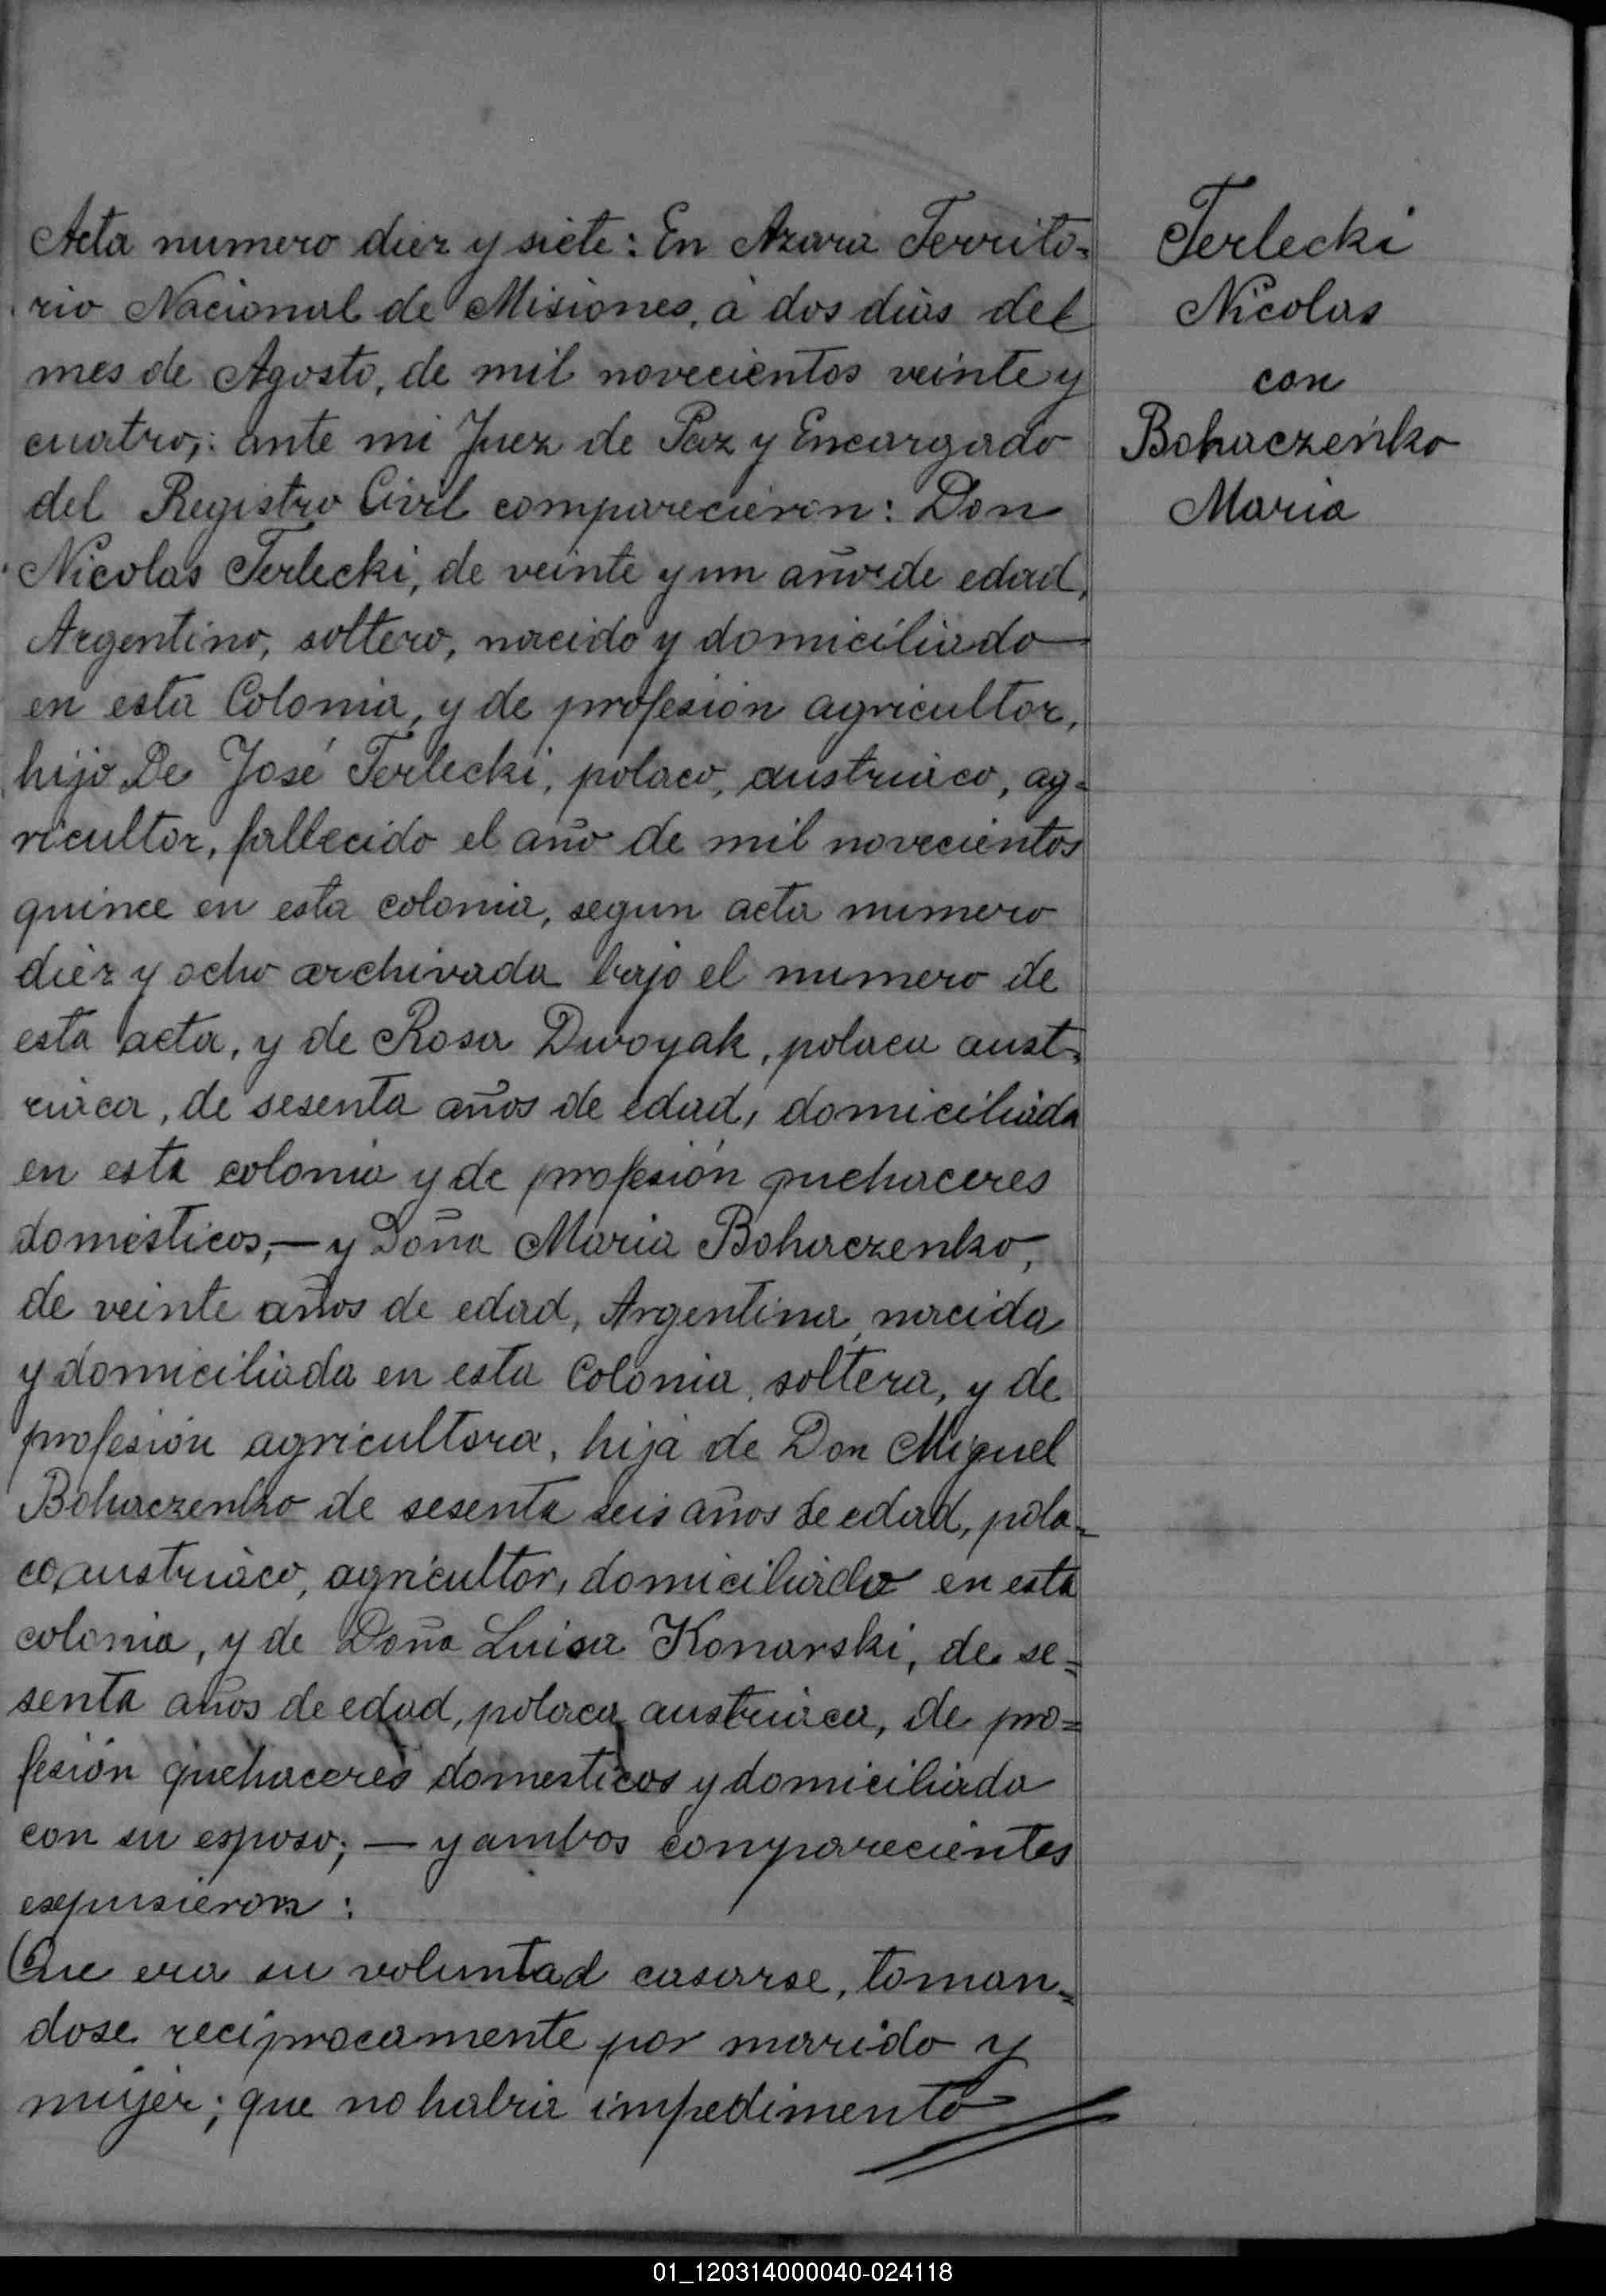 Acta numero diez y siete: En Azara Territo=
rio Nacional de Misiones, á dos dias del
mes de Agosto, de mil novecientos veinte y
cuatro,: ante mi Juez de Paz y Encargado
del Registro Civil comparecieron: Don
Nicolas Terlecki, de veinte y un años de edad,
Argentino, soltero, nacido y domiciliado
en esta Colonia, y de profesión agricultor,
hijo De José Terlecki, polaco, austriaco, ag=
ricultor, fallecido el año de mil novecientos
quince en esta colonia, segun acta numero
diez y ocho archivada bajo el numero de
esta acta, y de Rosa Dwoyak, polaca aust=
riaca, de sesenta años de edad, domiciliada
en esta colonia y de profesión quehaceres
domésticos,— y Doña Maria Bohaczenko,
de veinte años de edad, Argentina, nacida
y domiciliada en esta Colonia, soltera, y de
profesión agricultora, hija de Don Miguel
Bohaczenko de sesenta seis años de edad, pola=
co, austriaco, agricultor, domiciliado en esta
colonia, y de Doña Luisa Konarski, de se=
senta años de edad, polaca austriaca, de pro=
fesión quehaceres domesticos y domiciliada
con su esposo; — y ambos comparecientes
expusieron:
Que era su voluntad casarse, toman=
dose reciprocamente por marido y
mujer; que no habia impedimento
Terlecki
Nicolas
con
Bohaczeńko
Maria
01_120314000040-024118